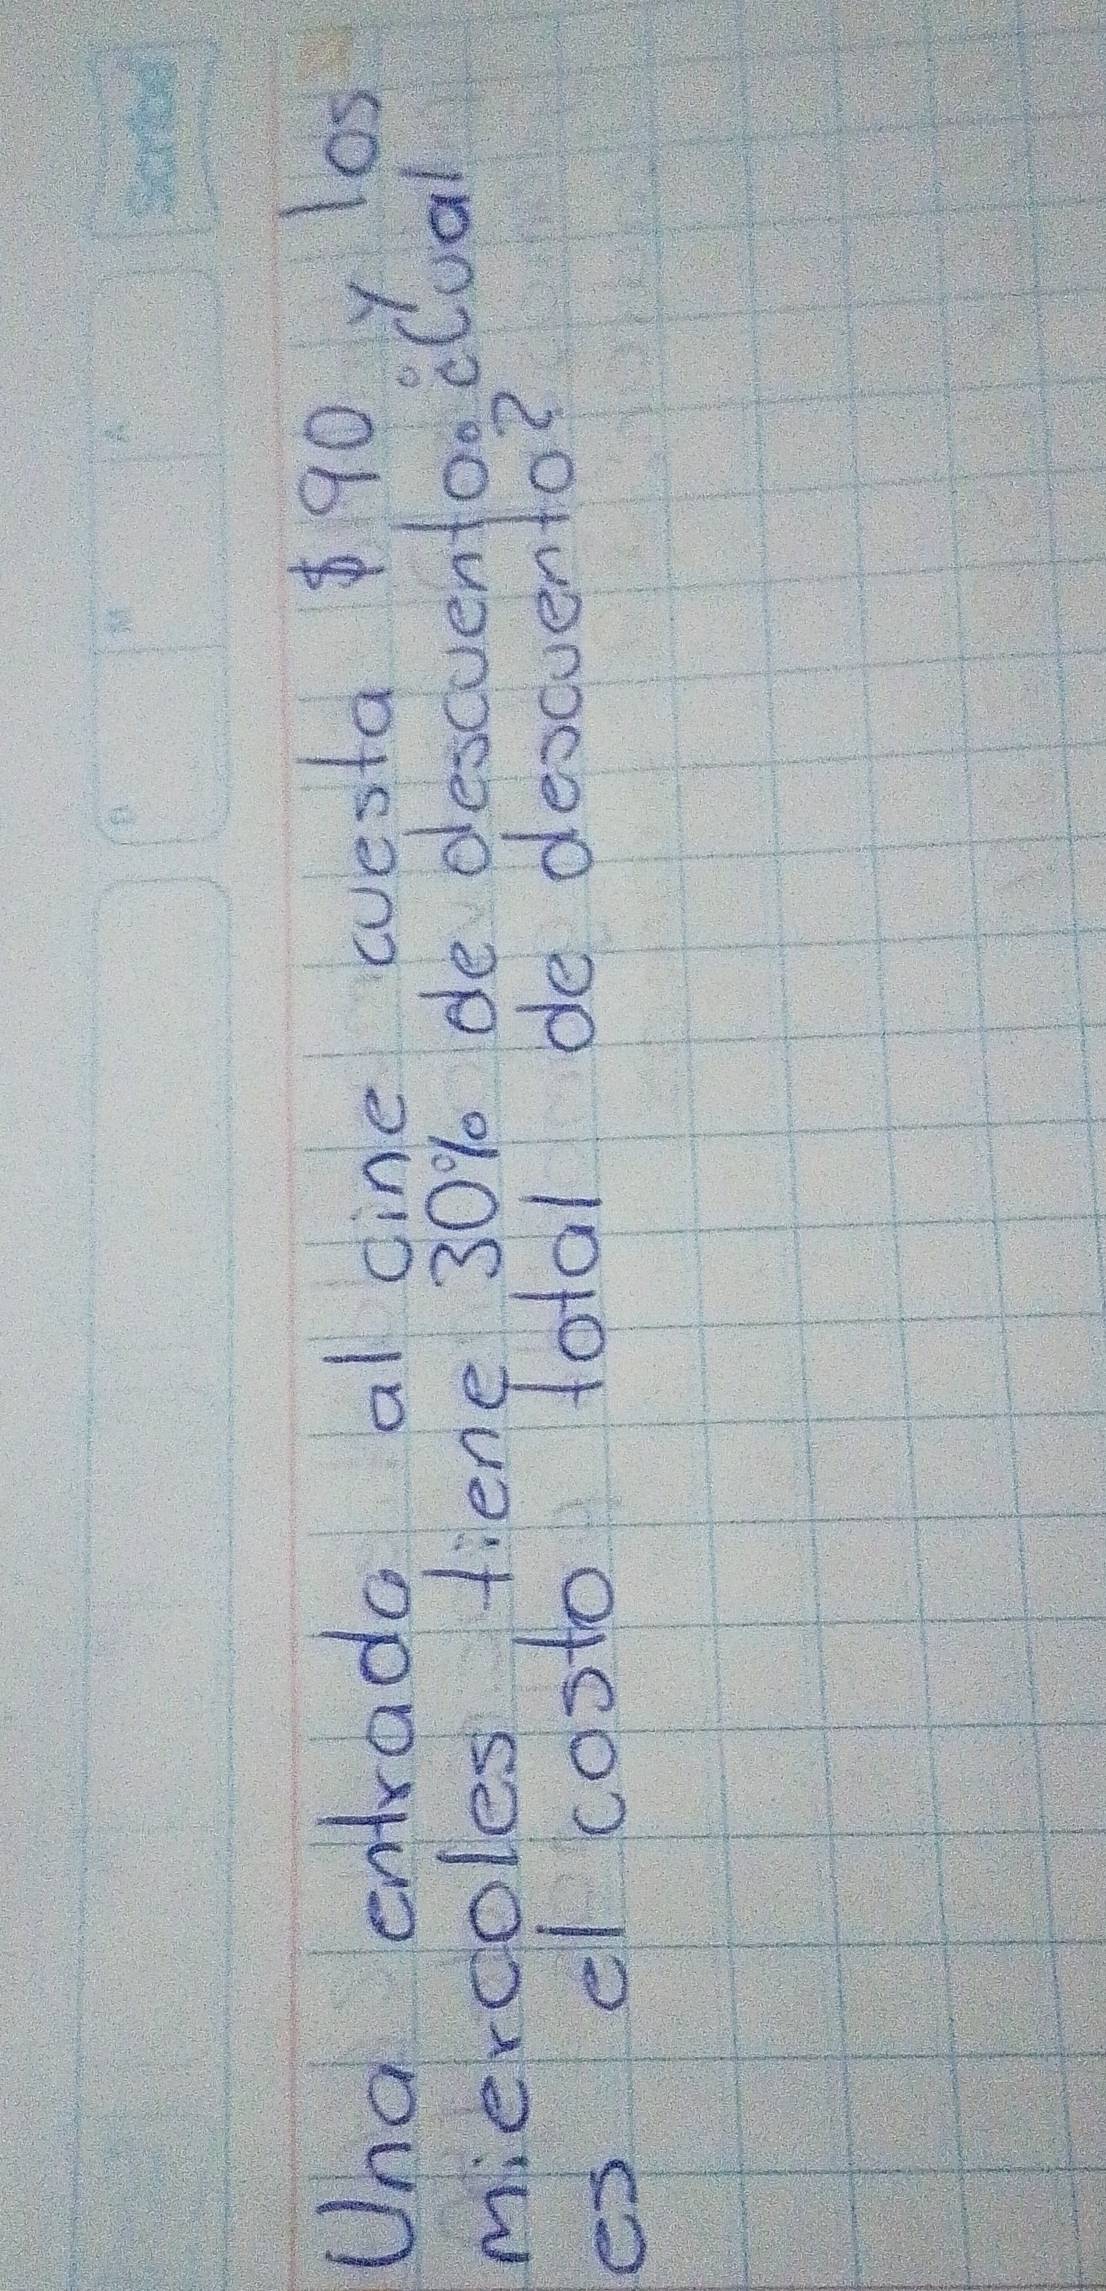 scribe
D M A
Una entrada al cine cuesta $90 y los
miercoles tiene 30% de descuento: ¿Cual
es el costo total de descuento?